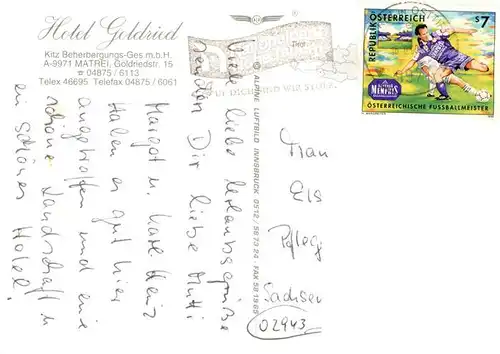 Hotel Goldried
Kitz Beherbergungs-Ges m.b.H.
A-9971 MATREI, Goldriedstr. 15
☎ 04875 / 6113
Telex 46695 Telefax 04875 / 6061
Tirol
REPUBLIK ÖSTERREICH S 7
MEMPHIS
ÖSTERREICHISCHE FUSSBALLMEISTER
© ALPINE LUFTBILD INNSBRUCK 0512 / 58 23 24 · FAX 58 19 65
Viele liebe Urlaubsgrüße
senden Dir liebe Mutti
Margot u. Karl Heinz
Haben es gut hier
angetroffen und eine
schöne Landschaft u
ein schönes Hotel.
Frau
Els
Pfleg
Sachsen
02943